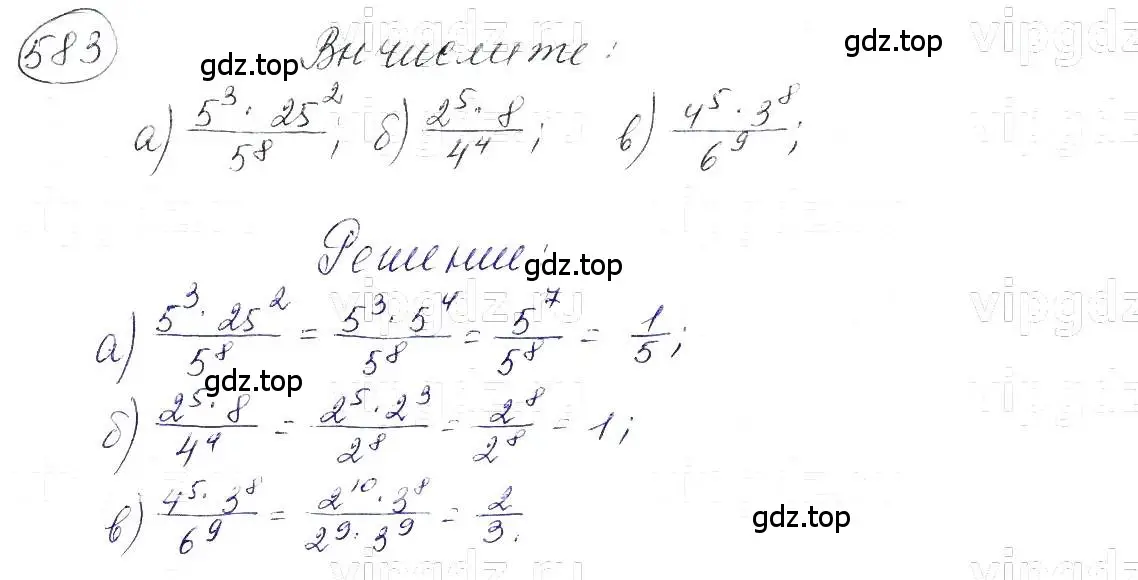 583 Вычислите:
а) \frac{5^3 \cdot 25^2}{5^8}; б) \frac{2^5 \cdot 8}{4^4}; в) \frac{4^5 \cdot 3^8}{6^9};
Решение:
а) \frac{5^3 \cdot 25^2}{5^8} = \frac{5^3 \cdot 5^4}{5^8} = \frac{5^7}{5^8} = \frac{1}{5};
б) \frac{2^5 \cdot 8}{4^4} = \frac{2^5 \cdot 2^3}{2^8} = \frac{2^8}{2^8} = 1;
в) \frac{4^5 \cdot 3^8}{6^9} = \frac{2^{10} \cdot 3^8}{2^9 \cdot 3^9} = \frac{2}{3}.
gdz.top
gdz.top
gdz.top
gdz.top
gdz.top
vipgdz.ru
vipgdz
vipgdz.ru
vipgdz
vipgdz.ru
vipgdz